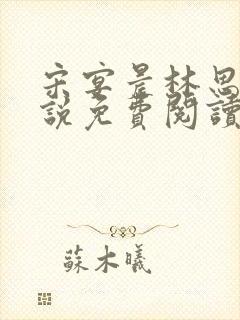 宋宴景林思
說免費閱讀
蘇木曦